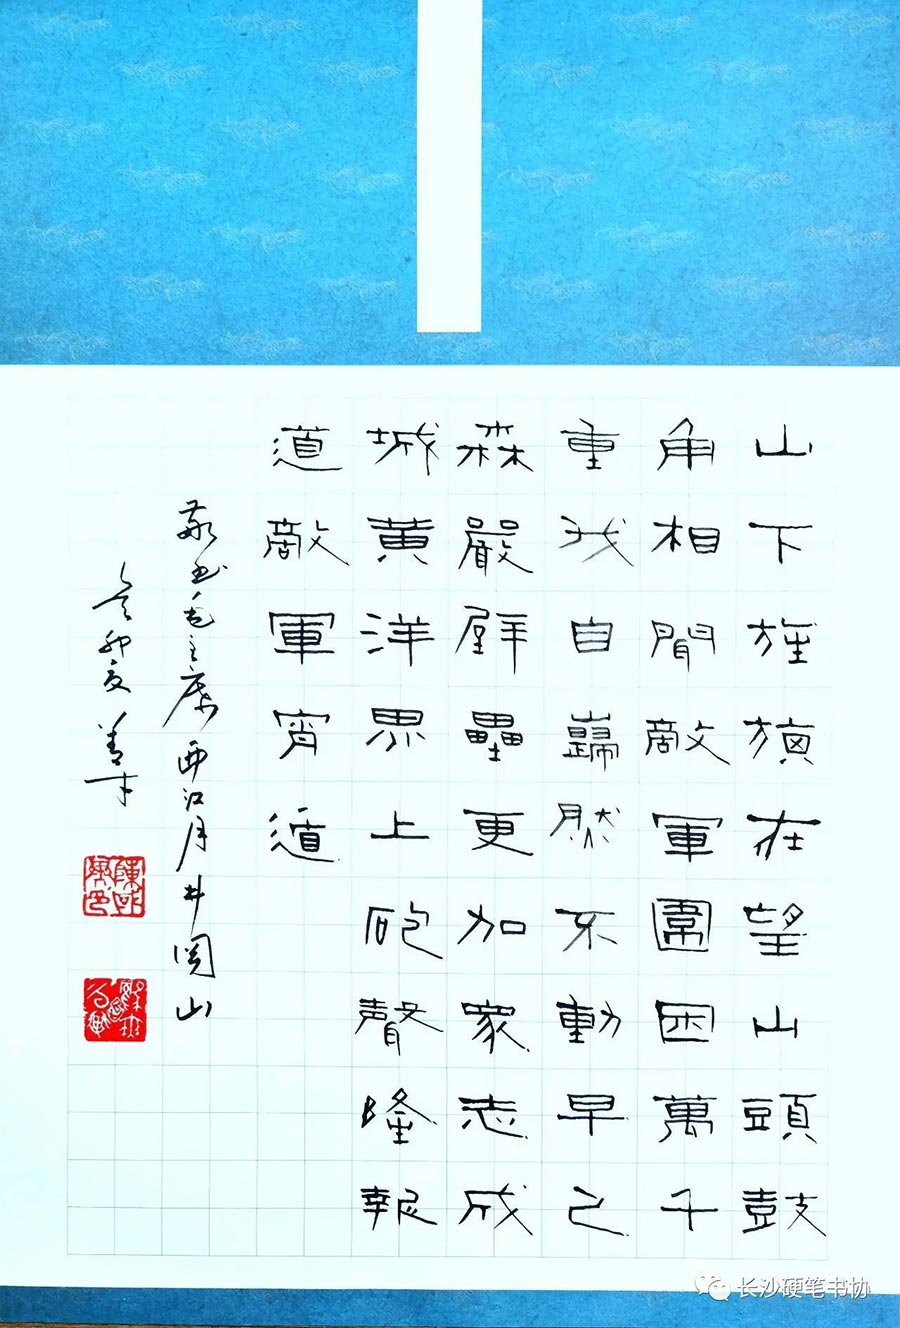 山下旌旗在望山頭鼓
角相聞敵軍圍困萬千
重我自巋然不動早已
森嚴壁壘更加衆志成
城黄洋界上砲聲隆報
道敵軍宵遁
敬书毛主席西江月井岡山
癸卯夏
长沙硬笔书协